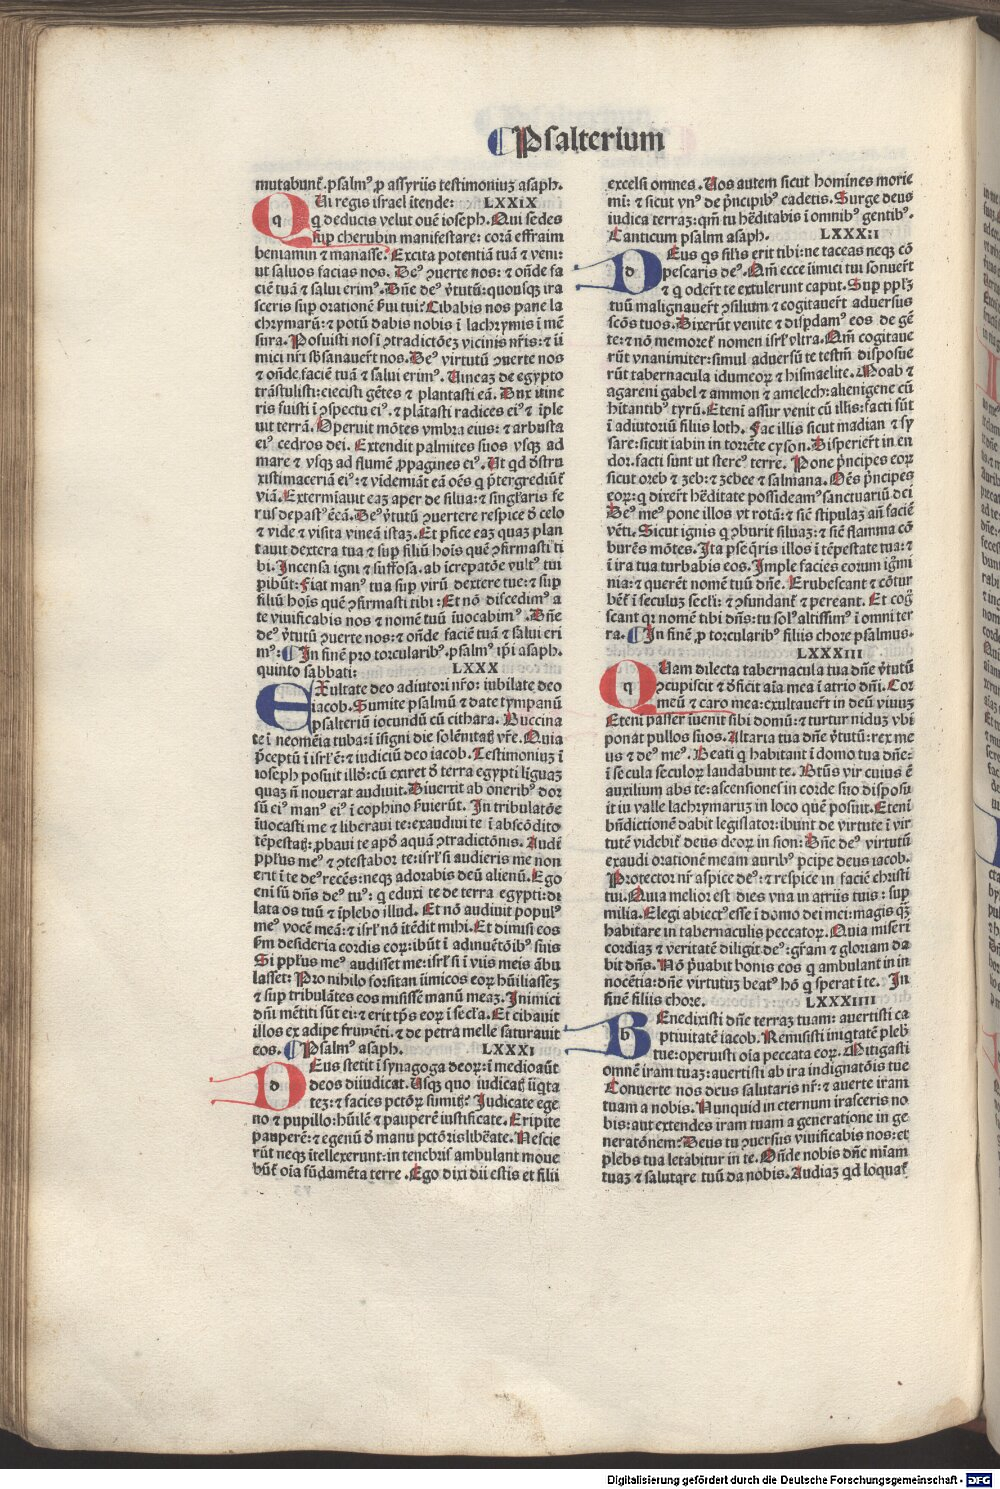 Psalterium
mutabunt᷒. psalmꝰ ꝓ assyriis testimoniuꝫ asaph.
QUi regis israel ītende: LXXIX
q deducis velut ouē ioseph. Qui sedes
sup cherubin manifestare: corā effraim
beniamin ⁊ manasse. Excita potentiā tuā ⁊ veni:
ut saluos facias nos. Deꝰ ꝯuerte nos: ⁊ oñde fa
ciē tuā ⁊ salui erimꝰ. Dñe deꝰ v̓tutū: quousqꝫ ira
sceris sup orationē ẜui tui: Cibabis nos pane la
chrymarū: ⁊ potū dabis nobis ī lachrymis ī mē
sura. Posuisti nos ī ꝯtradictōeꝫ vicinis nr̄is: ⁊ ii
mici nr̄i sb̄sanauer̄t nos. Deꝰ virtutū ꝯuerte nos
⁊ oñde faciē tuā ⁊ salui erimꝰ. Uineaꝫ de egypto
trāstulisti: eiecisti gētes ⁊ plantasti eā. Dux itine
ris fuisti ī ꝯspectu eiꝰ. ⁊ plātasti radices eiꝰ ⁊ īple
uit terrā. Operuit mōtes vmbra eius: ⁊ arbusta
eiꝰ cedros dei. Extendit palmites suos vsqꝫ ad
mare ⁊ vsqꝫ ad flumē ꝓpagines eiꝰ. Ut qd d̓stru
xisti maceriā eiꝰ: ⁊ videmiāt eā oēs q p̄tergrediūt᷒
viā. Exterminauit eaꝫ aper de silua: ⁊ singl̓aris fe
rus depastꝰ ē eā. Deꝰ v̓tutū ꝯuertere respice d̓ celo
⁊ vide ⁊ visita vineā istaꝫ. Et pfice eaꝫ quaꝫ plan
tauit dextera tua ⁊ sup filiū hoīs quē ꝯfirmasti ti
bi. Incensa igni ⁊ suffosa. ab īcrepatōe vultꝰ tui
pibūt: Fiat manꝰ tua sup virū dextere tue: ⁊ sup
filiū hoīs quē ꝯfirmasti tibi: Et nō discedimꝰ a
te viuificabis nos ⁊ nomē tuū īuocabimꝰ. Dñe
deꝰ v̓tutū ꝯuerte nos: ⁊ oñde faciē tuā ⁊ salui eri
mꝰ: In finē pro torcularibꝰ. psalmꝰ ip̄i asaph.
quinto sabbati: LXXX
EXultate deo adiutori nr̄o: iubilate deo
iacob. Sumite psalmū ⁊ date tympanū
psalteriū iocundū cū cithara. Buccina
te ī neomēia tuba: ī īsigni die solēnitatꝫ vr̄e. Quia
p̄ceptū ī isrl̓ ē: ⁊ iudiciū deo iacob. Testimoniuꝫ ī
ioseph posuit illd̓: cū exiret d̓ terra egypti līguaꝫ
quaꝫ ñ nouerat audiuit. Diuertit ab oneribꝰ dor
sū eiꝰ manꝰ eiꝰ ī cophino ẜuierūt. In tribulatōe
īuocasti me ⁊ liberaui te: exaudiui te ī abscōdito
tēpestatꝫ: ꝓbaui te apd̓ aquā ꝯtradictōnis. Audi
ppl̓us meꝰ ⁊ ꝯtestabor te: isrl̓ si audieris me non
erit ī te deꝰ recēs: neqꝫ adorabis deū alienū. Ego
eni sū dñs deꝰ tuꝰ: q eduxi te de terra egypti: di
lata os tuū ⁊ īplebo illud. Et nō audiuit populꝰ
meꝰ vocē meā: ⁊ isrl̓ nō ītēdit mihi. Et dimisi eos
ẜm desideria cordis eoꝝ: ibūt ī adinuētōibꝰ suis
Si ppl̓us meꝰ audisset me: isrl̓ si ī viis meis ābu
lasset: Pro nihilo forsitan īimicos eoꝝ hūiliasseꝫ
⁊ sup tribulātes eos misissē manū meaꝫ. Inimici
dn̄i mētiti sūt ei: ⁊ erit tp̄s eoꝝ ī secl̓a. Et cibauit
illos ex adipe frumēti. ⁊ de petra melle saturauit
eos. Psalmꝰ asaph. LXXXI
DEus stetit ī synagoga deoꝝ: ī medio aūt
deos diiudicat. Usqꝫ quo iudicatꝫ iīqta
teꝫ: ⁊ facies pctōꝝ sumitꝫ: Iudicate ege
no ⁊ pupillo: hūilē ⁊ pauperē iustificate. Eripite
pauperē: ⁊ egenū d̓ manu pctōris libēate. Nescie
rūt neqꝫ ītellexerunt: in tenebrꝭ ambulant moue
būt᷒ oīa fūdamēta terre. Ego dixi dii estis et filii
excelsi omnes. Uos autem sicut homines morie
mi: ⁊ sicut ynꝰ de p̄ncipibꝰ cadetis. Surge deus
iudica terraꝫ: qm̄ tu hēditabis ī omnibꝰ gentibꝰ.
Canticum psalm asaph. LXXXII
DEus qs silis erit tibi: ne taceas neqꝫ cō
pescaris deꝰ. Qm̄ ecce īimici tui sonuer̄t
⁊ q oder̄t te extulerunt caput. Sup ppl̓ꝫ
tuū malignauer̄t ꝯsilium ⁊ cogitauer̄t aduersus
scōs tuos. Dixerūt venite ⁊ dispdamꝰ eos de gē
te: ⁊ nō memoret᷒ nomen isrl̓ vltra. Qm̄ cogitaue
rūt vnanimiter: simul aduersū te testm̄ disposue
rūt tabernacula idumeoꝝ ⁊ hismaelite. Moab ⁊
agareni gabel ⁊ ammon ⁊ amelech: alienigene cū
hītantibꝰ tyrū. Eteni assur venit cū illis: facti sūt
ī adiutoriū filiis loth. Fac illis sicut madian ⁊ sy
sare: sicut iabin in torrēte cyson. Disperier̄t in en
dor. facti sunt ut stercꝰ terre. Pone p̄ncipes eoꝝ
sicut oreb ⁊ ꝫeb: ⁊ ꝫebee ⁊ salmana. Oēs p̄ncipes
eoꝝ: q dixer̄t hēditate possideamꝰ sanctuariū dei
Deꝰ meꝰ pone illos vt rotā: ⁊ sic̄ stipulaꝫ añ faciē
vēti. Sicut ignis q ꝯburit siluaꝫ: ⁊ sic̄ flamma cō
burēs mōtes. Ita pseq̄ris illos ī tēpestate tua: ⁊
ī ira tua turbabis eos. Imple facies eorum ignōmi
nia: ⁊ querēt nomē tuū dñe. Erubescant ⁊ cōtur
bēt᷒ ī seculuꝫ secl̓i: ⁊ ꝯfundant᷒ ⁊ pereant. Et cog̓
scant qr nomē tibi dñs: tu solꝰ altissimꝰ ī omni ter
ra. In finē ꝓ torcularibꝰ filiis chore psalmus.
LXXXIII
QUam dilecta tabernacula tua dñe v̓tutū
ꝯcupiscit ⁊ d̓ficit aīa mea ī atrio dn̄i. Cor
meū ⁊ caro mea: exultauer̄t in deū viuuꝫ
Eteni passer īuenit sibi domū: ⁊ turtur niduꝫ vbi
ponat pullos suos. Altaria tua dñe v̓tutū: rex me
us ⁊ deꝰ meꝰ. Beati q habitant ī domo tua dñe:
ī secula seculoꝝ laudabunt te. Btūs vir cuius ē
auxilium abs te: ascensiones in corde suo disposu
it in valle lachrymaruꝫ in loco quē posuit. Eteni
bn̄dictionē dabit legislator: ibunt de virtute ī vir
tutē videbit᷒ deus deoꝝ in sion: Dñe deꝰ virtutū
exaudi orationē meam auribꝰ pcipe deus iacob.
Protector nr̄ aspice deꝰ: ⁊ respice in faciē christi
tui. Quia melior est dies vna in atriis tuis: sup
milia. Elegi abiectꝰ esse ī domo dei mei: magis qꝫ
habitare in tabernaculis peccatoꝝ. Quia miseri
cordiaꝫ ⁊ veritatē diligit deꝰ: gr̄am ⁊ gloriam da
bit dñs. Nō p̄uabit bonis eos q ambulant in in
nocētia: dñe virtutuꝫ beatꝰ hō q sperat ī te. In
finē filiis chore. LXXXIIII
BEnedixisti dñe terraꝫ tuam: auertisti ca
ptiuitatē iacob. Remisisti iniqtatē pleb
tue: operuisti oīa peccata eoꝝ. Mitigasti
omnē iram tuaꝫ: auertisti ab ira indignatōis tue
Conuerte nos deus salutaris nr̄: ⁊ auerte iram
tuam a nobis. Nunquid in eternum irasceris no
bis: aut extendes iram tuam a generatione in ge
neratōnem: Deus tu ꝯuersus viuificabis nos: et
plebs tua letabitur in te. Oñde nobis dñe mīam
tuaꝫ ⁊ salutare tuū da nobis. Audiaꝫ qd loquat᷒
Digitalisierung gefördert durch die Deutsche Forschungsgemeinschaft - DFG